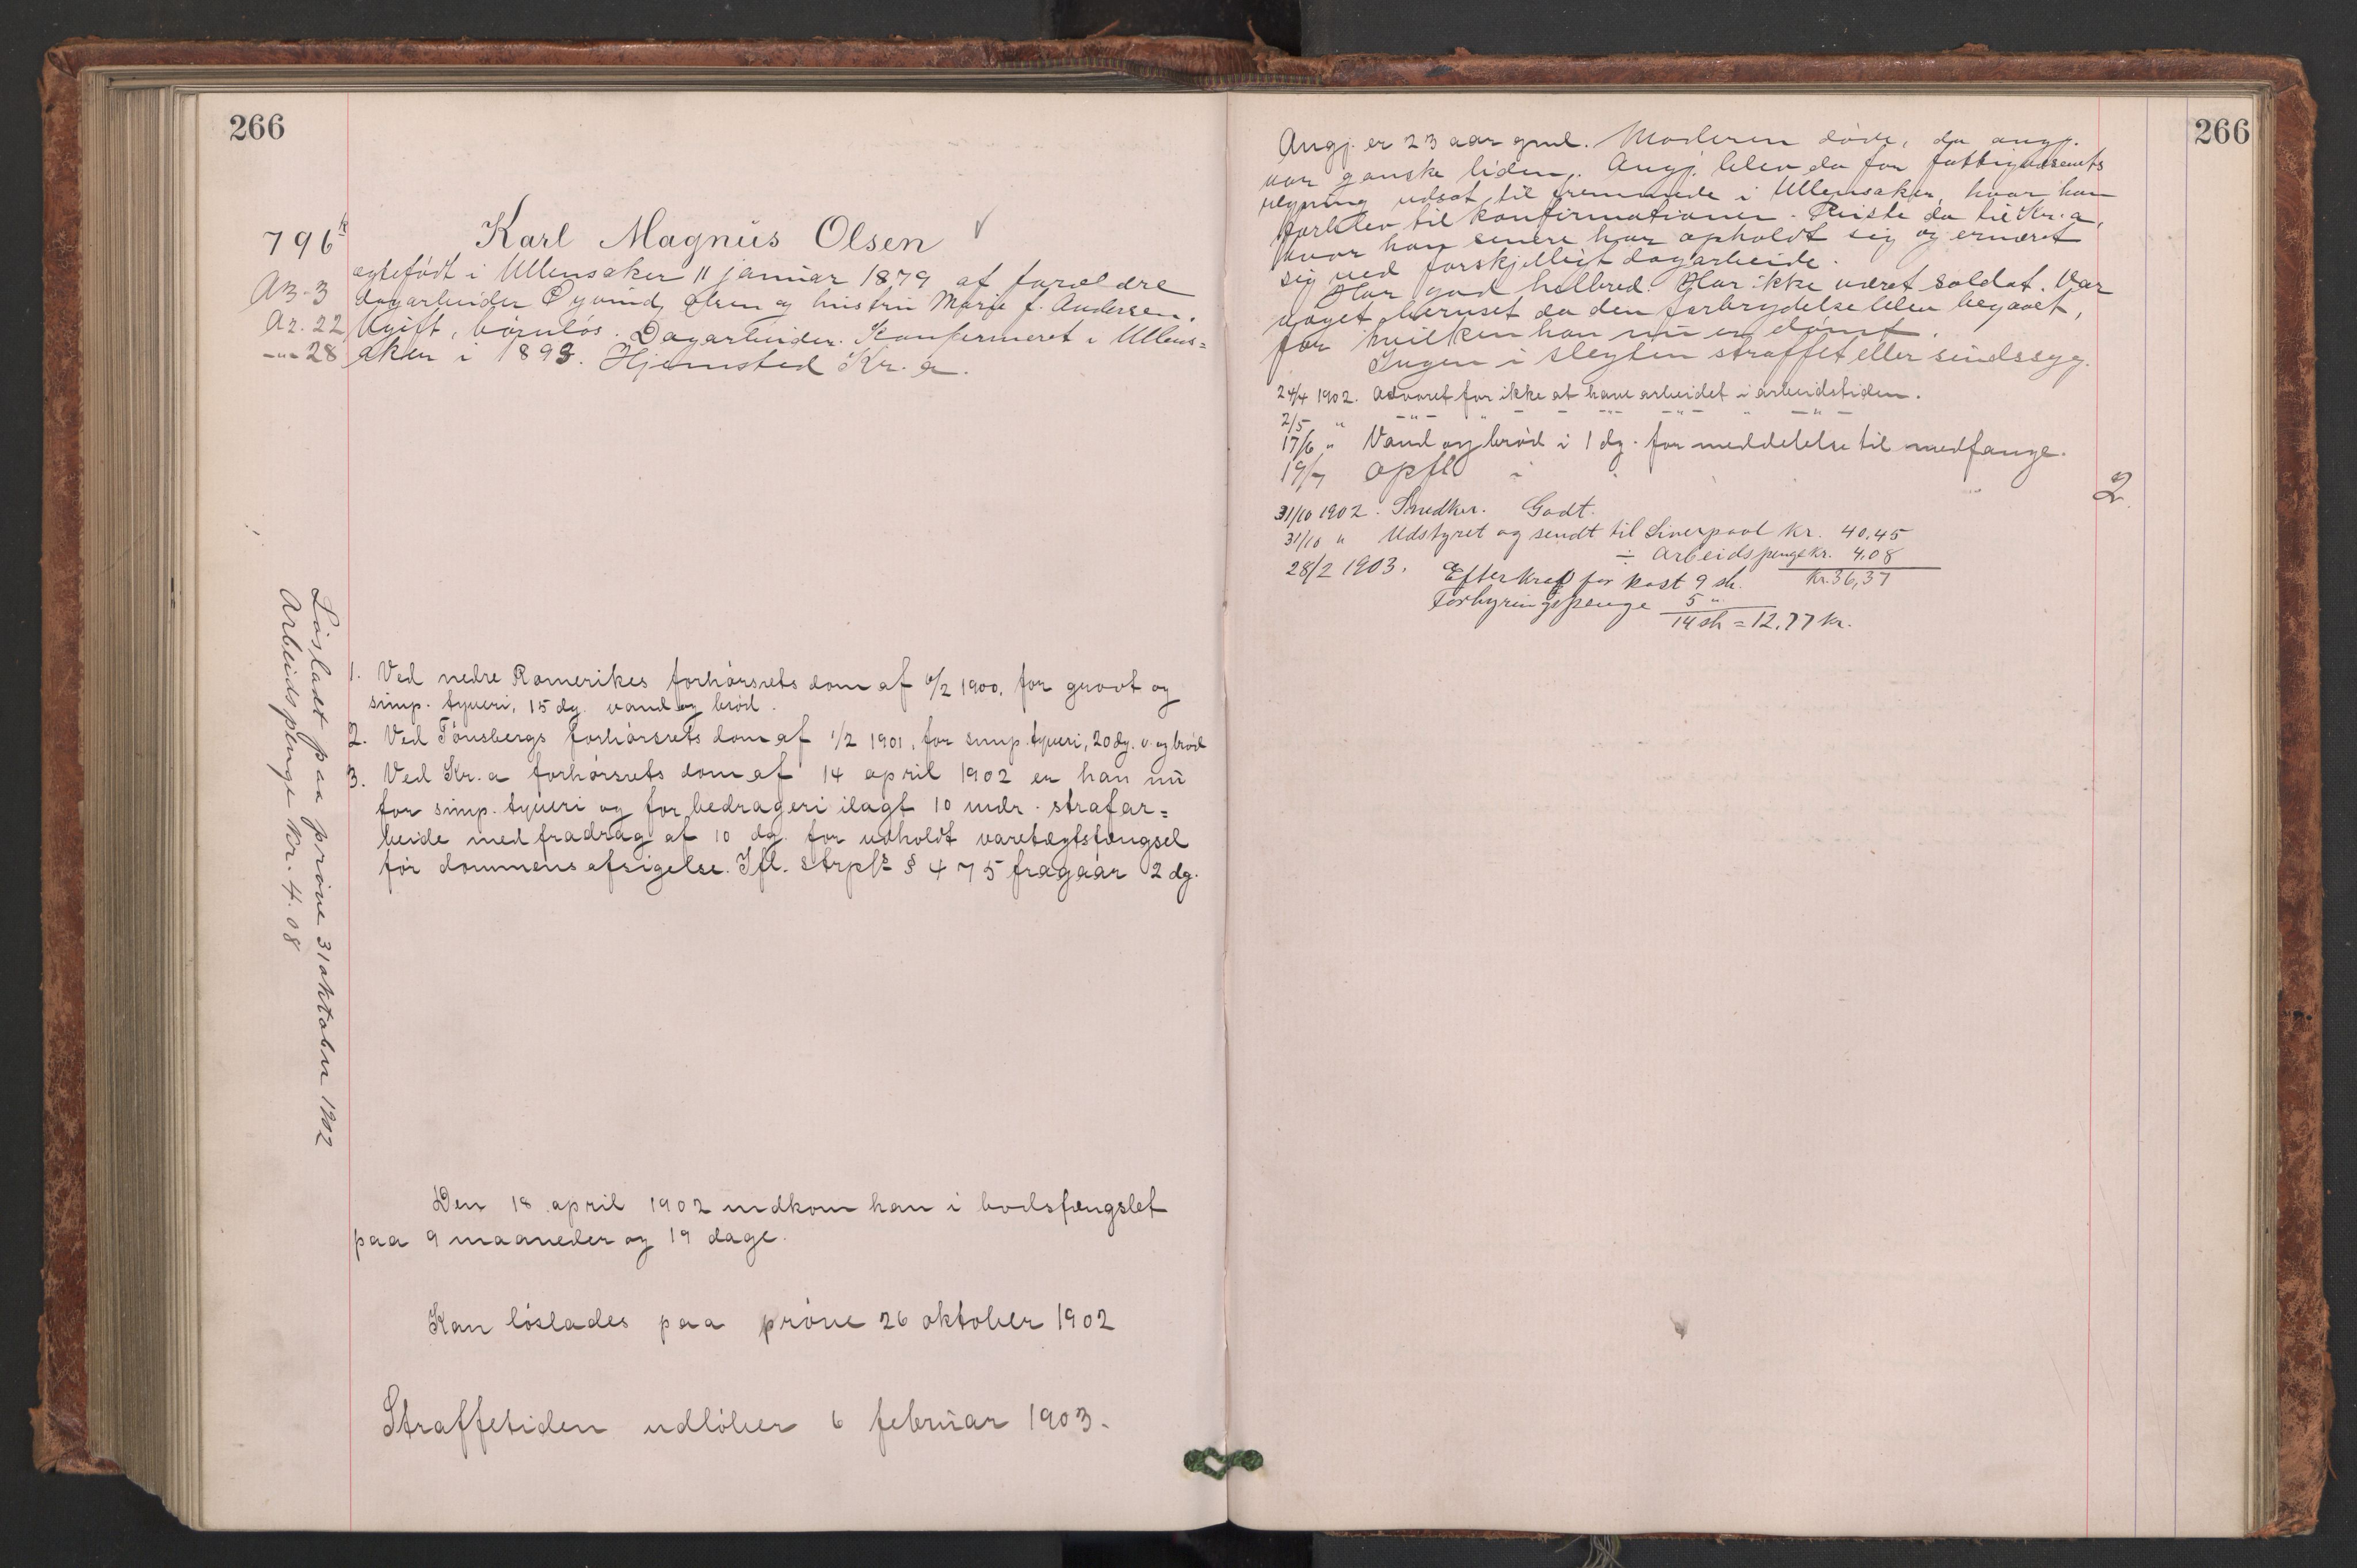 266
796k
Karl Magnus Olsen ✓
ægtefødt i Ullensaker 11 januar 1879 af forældre
A3-3 dagarbeider Øyvind Olsen og hustru Marie f. Andersen.
Az. 22 Ugift, børnløs. Dagarbeider. Konfirmeret i Ullens=
-"- 28 aker i 1893. Hjemsted Kr.a.
1. Ved nedre Romerikes forhørsrets dom af 6/2 1900, for grovt og
simp. tyveri, 15 dg. vand og brød.
2. Ved Tønsbergs forhørsrets dom af 1/2 1901, for simp. tyveri, 20 dg. v. og brød
3. Ved Kr.a forhørsrets dom af 14 april 1902 er han nu
for simp. tyveri og for bedrageri ilagt 10 mdr. strafar=
beide med fradrag af 10 dg. for udholdt varetægtsfængsel
før dommens afsigelse. Ifl. strpl § 475 fragaar 2 dg.
Den 18 april 1902 indkom han i bodsfængslet
paa 9 maaneder og 19 dage.
Kan løslades paa prøve 26 oktober 1902
Straffetiden udløber 6 februar 1903.
Løsladt paa prøve 31 oktober 1902
Arbeidspenge Kr. 4.08
266
Angj. er 23 aar gml. Moderen døde, da angj.
var ganske liden. Angj. blev da for fattigvæsenets
regning udsat til fremmede i Ullensaker, hvor han
forblev til konfirmationen. Reiste da til Kr.a,
hvor han senere har opholdt sig og ernæret
sig ved forskjelligt dagarbeide.
Har god helbred. Har ikke været soldat. Var
noget beruset da den forbrydelse blev begaaet,
for hvilken han nu er dømt.
Ingen i slegten straffet eller sindssyg.
24/4 1902. Advaret for ikke at have arbeidet i arbeidstiden.
2/5 " -"- " -"- -"- " -"-
17/6 " Vand og brød i 1 dg. for meddelelse til medfange.
19/7 opfl i
2
31/10 1902. Snedker. Godt.
31/10 " Udstyret og sendt til Liverpool Kr. 40,45
÷ Arbeidspenge kr. 4,08
Kr. 36,37
28/2 1903. Efterkrav for kost 9 sh.
Forhyringspenge 5 "
14 sh = 12.77 kr.